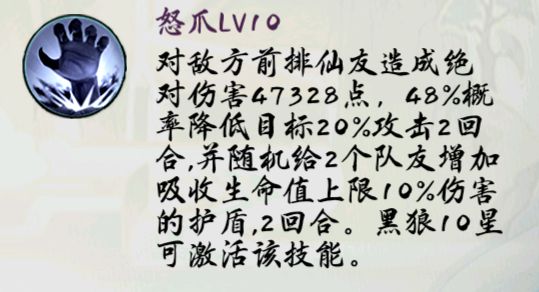 怒爪LV10
对敌方前排仙友造成绝
对伤害47328点，48%概
率降低目标20%攻击2回
合,并随机给2个队友增加
吸收生命值上限10%伤害
的护盾,2回合。黑狼10星
可激活该技能。